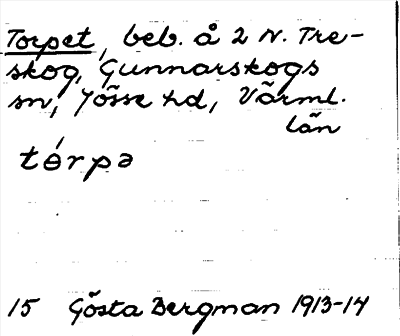 Torpet, beb. å 2 N. Tre-
skog, Gunnarskogs
sn, Jösse hd, Värml.
län
tórpə
15 Gösta Bergman 1913-14